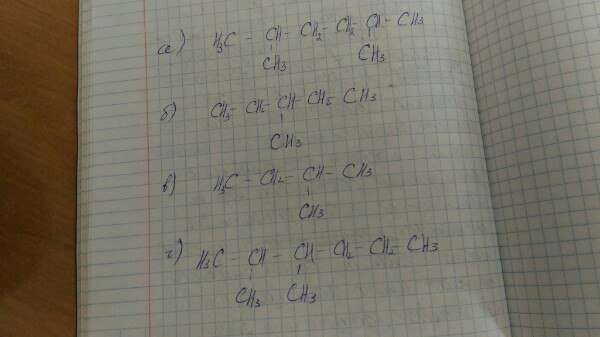 а) H3C - CH - CH2 - CH2 - CH - CH3
CH3 CH3
б) CH3 - CH2 - CH - CH2 - CH3
CH3
в) H3C - CH2 - CH - CH3
CH3
г) H3C - CH - CH - CH2 - CH2 - CH3
CH3 CH3